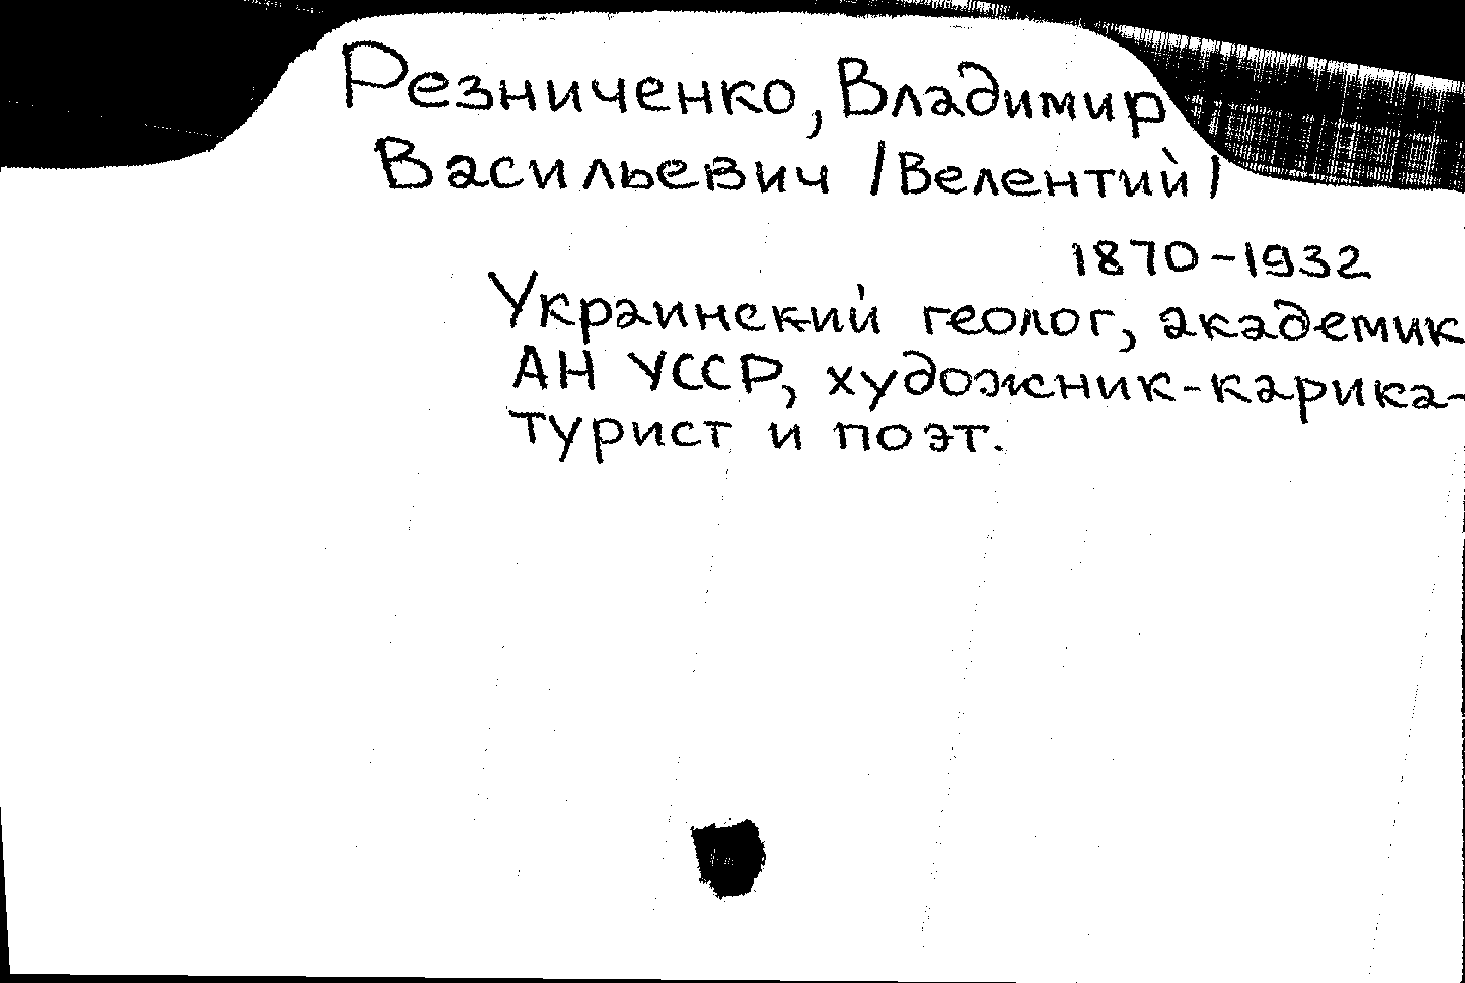 Резниченко, Владимир
Васильевич /Велентий/
1870-1932
Украинский геолог, академик
АН УССР, художник-карика-
турист и поэт.